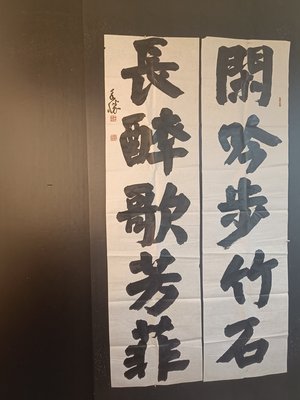 閑吟步竹石
長醉歌芳菲